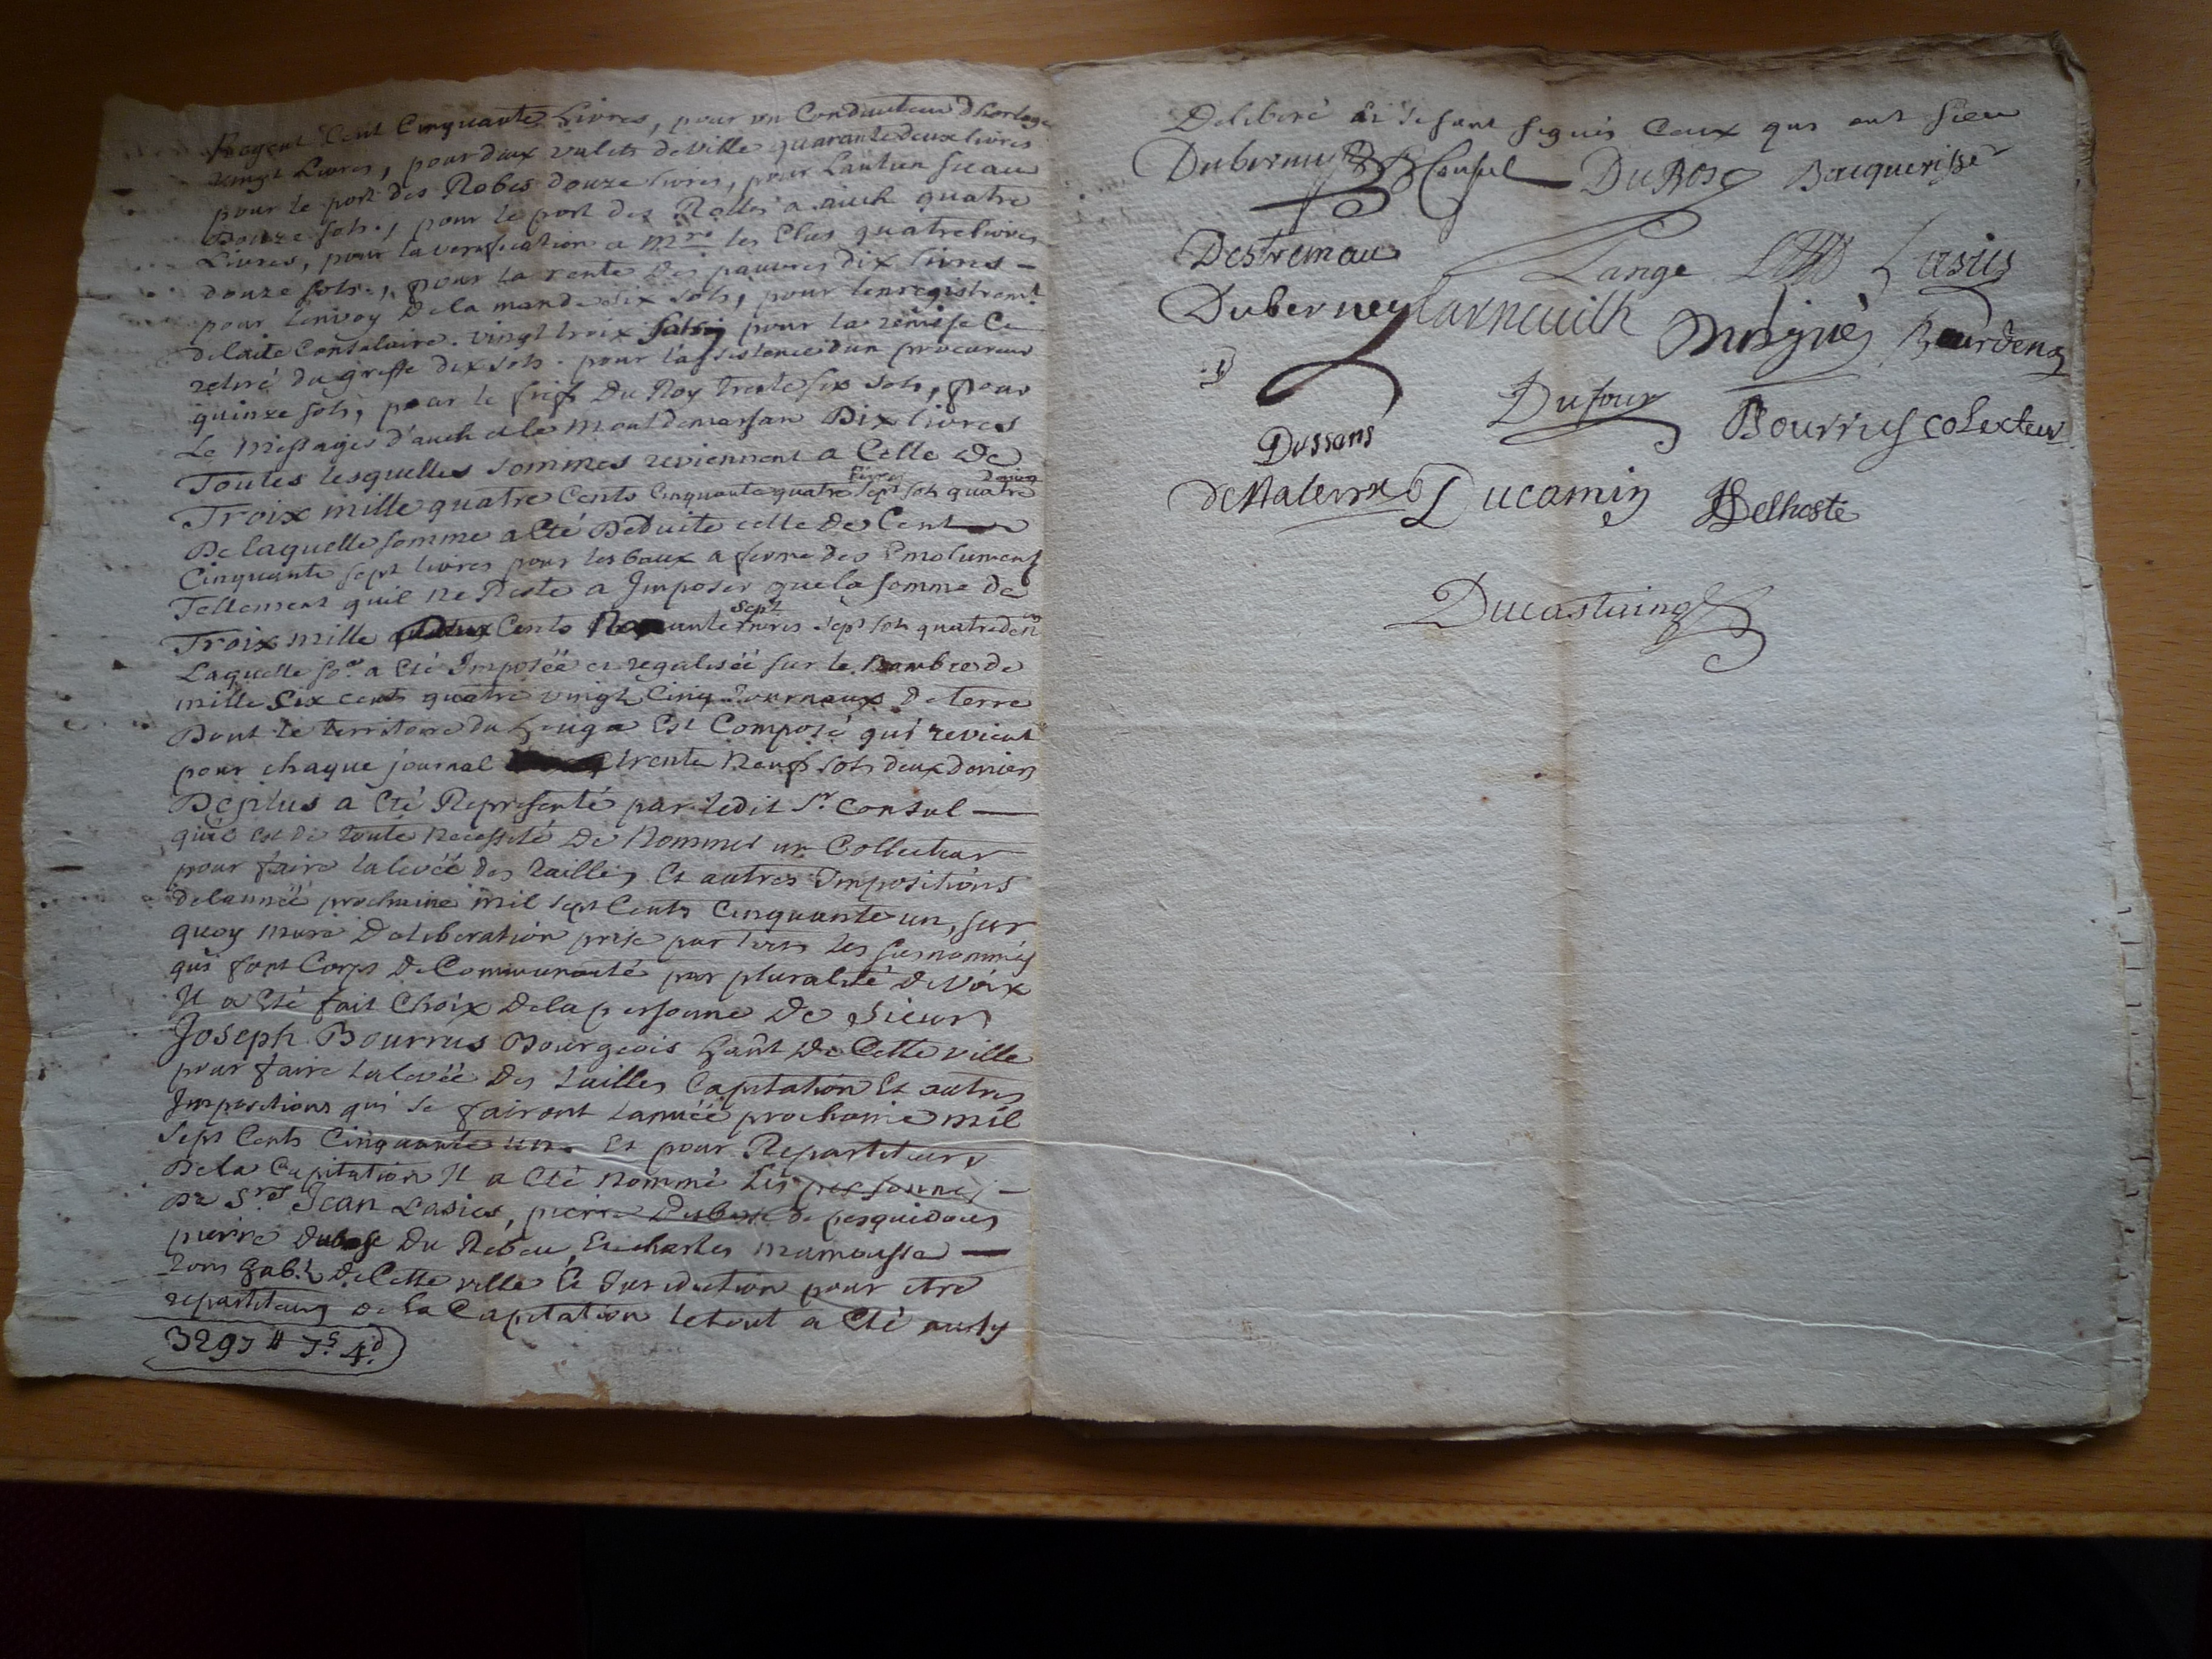 Regent Cent Cinquante Livres, pour un Conducteur d'horloge
vingt Livres, pour deux valets de ville quarante deux livres
pour le port des Robes douze livres, pour
Douze sols., pour le port des Rolles a auch quatre
Livres, pour la verification a les Elus quatre livres
douze sols., pour la rente des pauvres dix livres
pour lenvoy de la mande six sols, pour lenregistremt
Consulaire. vingt trois sols pour la remise Ce
retiré du greffe dix sols. pour l'assistence dun procureur
quinze sols, pour le Du Roy trente six sols, pour
Le Messager d'auch et le Montdemarsan Dix livres
Toutes lesquelles sommes reviennent a Celle De
Troix mille quatre Cents Cinquante quatre Livres sept sols quatre
De laquelle somme a Eté Deduite celle de Cent
Cinquante sept livres pour les baux a ferme des Emoluments
Tellement quil ne Reste a Imposer que la somme de
Troix mille Deux Cents sept Livres sept sols quatre den
Laquelle so.e a Eté Imposéé et regalisée sur le Nombre de
mille Six cents quatre vingt Cinq Journaux De terre
Dont le territoire du houga Est Composé qui revient
pour chaque journal trente Neuf sols deux deniers
De plus a Eté Representé par ledit Sr. Consul
quil est de toute necessité De Nommer un Collecteur
pour faire la levéé des tailles Et autres Impositions
de lannéé prochaine mil sept Cents Cinquante un, sur
quoy mure Deliberation prise par tous les susnommés
qui font Corps De Communauté par pluralité de Voix
Il a Eté fait Choix de la personne De Sieur
Joseph Bourrus Bourgeois De Cette ville
pour faire la levéé Des tailles Capitation Et autres
Impositions qui se fairont lannéé prochaine mil
sept Cents Cinquante un. Et pour Repartiteurs
De la Capitation Il a Eté nommé Les personnes
De S.rs Jean Lasies, pierre Dubosc de pesquidous
pierre Dubosc Du Et charles mamousse
Tous hab.ts de Cette ville Et Juridiction pour etre
repartiteurs de La Capitation le tout a Eté ainsy
3297 # 7s. 4d.
Deliberé Et se sont signés Ceux qui ont sceu
Duberney Consul DuBosc Bacquerisse
Destremau Lange Lasies
Duberney Larneuilh Bourdens
Dussans Dufour Bourrus colecteur
Ducamin Delhoste
Ducastaing